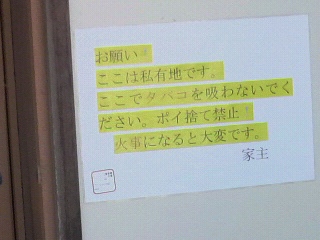 お願い！
ここは私有地です。
ここでタバコを吸わないでく
ださい。ポイ捨て禁止！
火事になると大変です。
家主